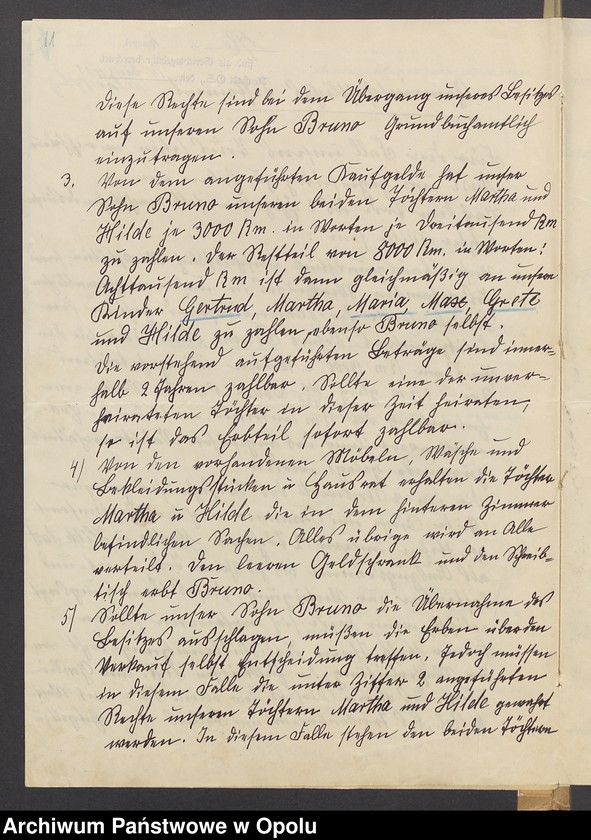 11
Diese Rechte sind bei dem Übergang unseres Besitzes
auf unseren Sohn Bruno Grundbuchamtlich
einzutragen.
3. Von dem angeführten Kaufgelde hat unser
Sohn Bruno unseren beiden Töchtern Martha und
Hilde je 3000 Rm. in Worten je Dreitausend Rm
zu zahlen. Der Restteil von 8000 Rm. in Worten:
Achttausend Rm ist dann gleichmäßig an unsere
Kinder Gertrud, Martha, Maria, Max, Grete
und Hilde zu zahlen, ebenso Bruno selbst.
Die vorstehend aufgeführten Beträge sind inner-
halb 2 Jahren zahlbar. Sollte eine der unver-
heirateten Töchter in dieser Zeit heiraten,
so ist das Erbteil sofort zahlbar.
4) Von den vorhandenen Möbeln, Wäsche und
Bekleidungsstücken u Hausrat erhalten die Töchter
Martha u Hilde die in dem hinteren Zimmer
befindlichen Sachen. Alles übrige wird an Alle
verteilt. Den leeren Geldschrank und den Schreib-
tisch erbt Bruno.
5) Sollte unser Sohn Bruno die Übernahme des
Besitzes ausschlagen, müßen die Erben über den
Verkauf selbst Entscheidung treffen. Jedoch müssen
in diesem Falle die unter Ziffer 2 angeführten
Rechte unseren Töchtern Martha und Hilde gewahrt
werden. In diesem Falle stehen den beiden Töchtern
Archiwum Państwowe w Opolu